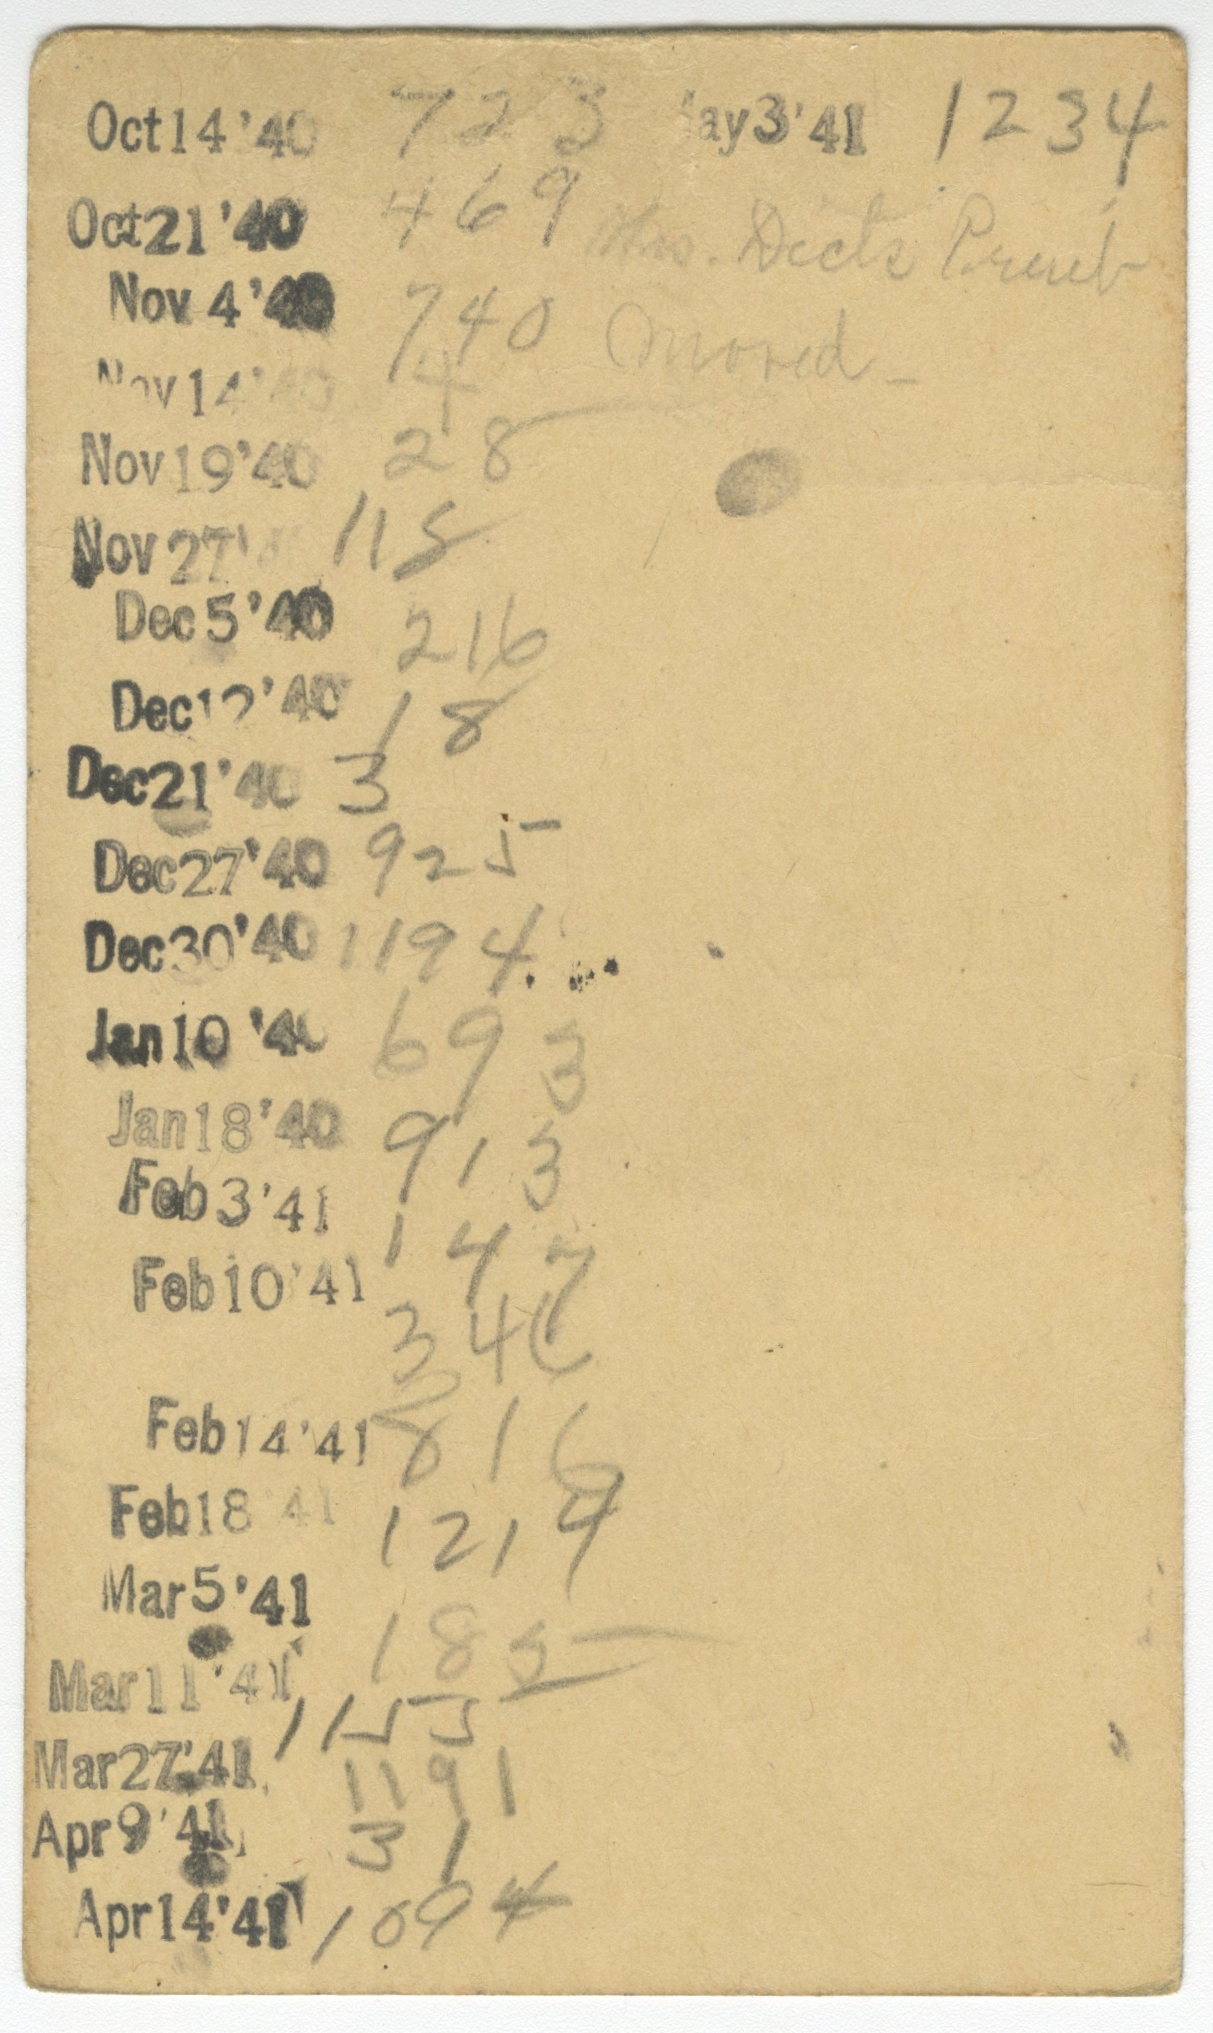 Oct 14 '40 723
Oct 21 '40 469
Nov 4 '40 740
Nov 14 '40 4
Nov 19 '40 28
Nov 27 ' 115
Dec 5 '40 216
Dec 12 '40 18
Dec 21 '40 3
Dec 27 '40 925
Dec 30 '40 1194
Jan 10 '40 693
Jan 18 '40 913
Feb 3 '41 147
Feb 10 '41 346
Feb 14 '41 816
Feb 18 41 1214
Mar 5 '41 185
Mar 11 '41 1155
Mar 27 '41 1191
Apr 9 '41 31
Apr 14 '41 1094
May 3 '41 1234
Mrs.
moved -